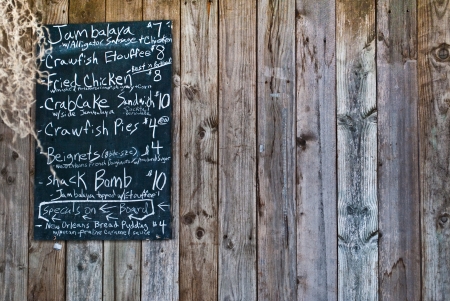 Jambalaya $7
w/Alligator Sausage + Chicken
Crawfish Etouffee $8
Fried Chicken $8
- CrabCake Sandwich $10
w/side Jambalaya
- Crawfish Pies $4
- Beignets (Bite-size) $4
- Shack Bomb $10
Jambalaya topped w/Etouffee
Specials on Board
- New Orleans Bread Pudding $4
w/Pecan Praline Caramel Sauce